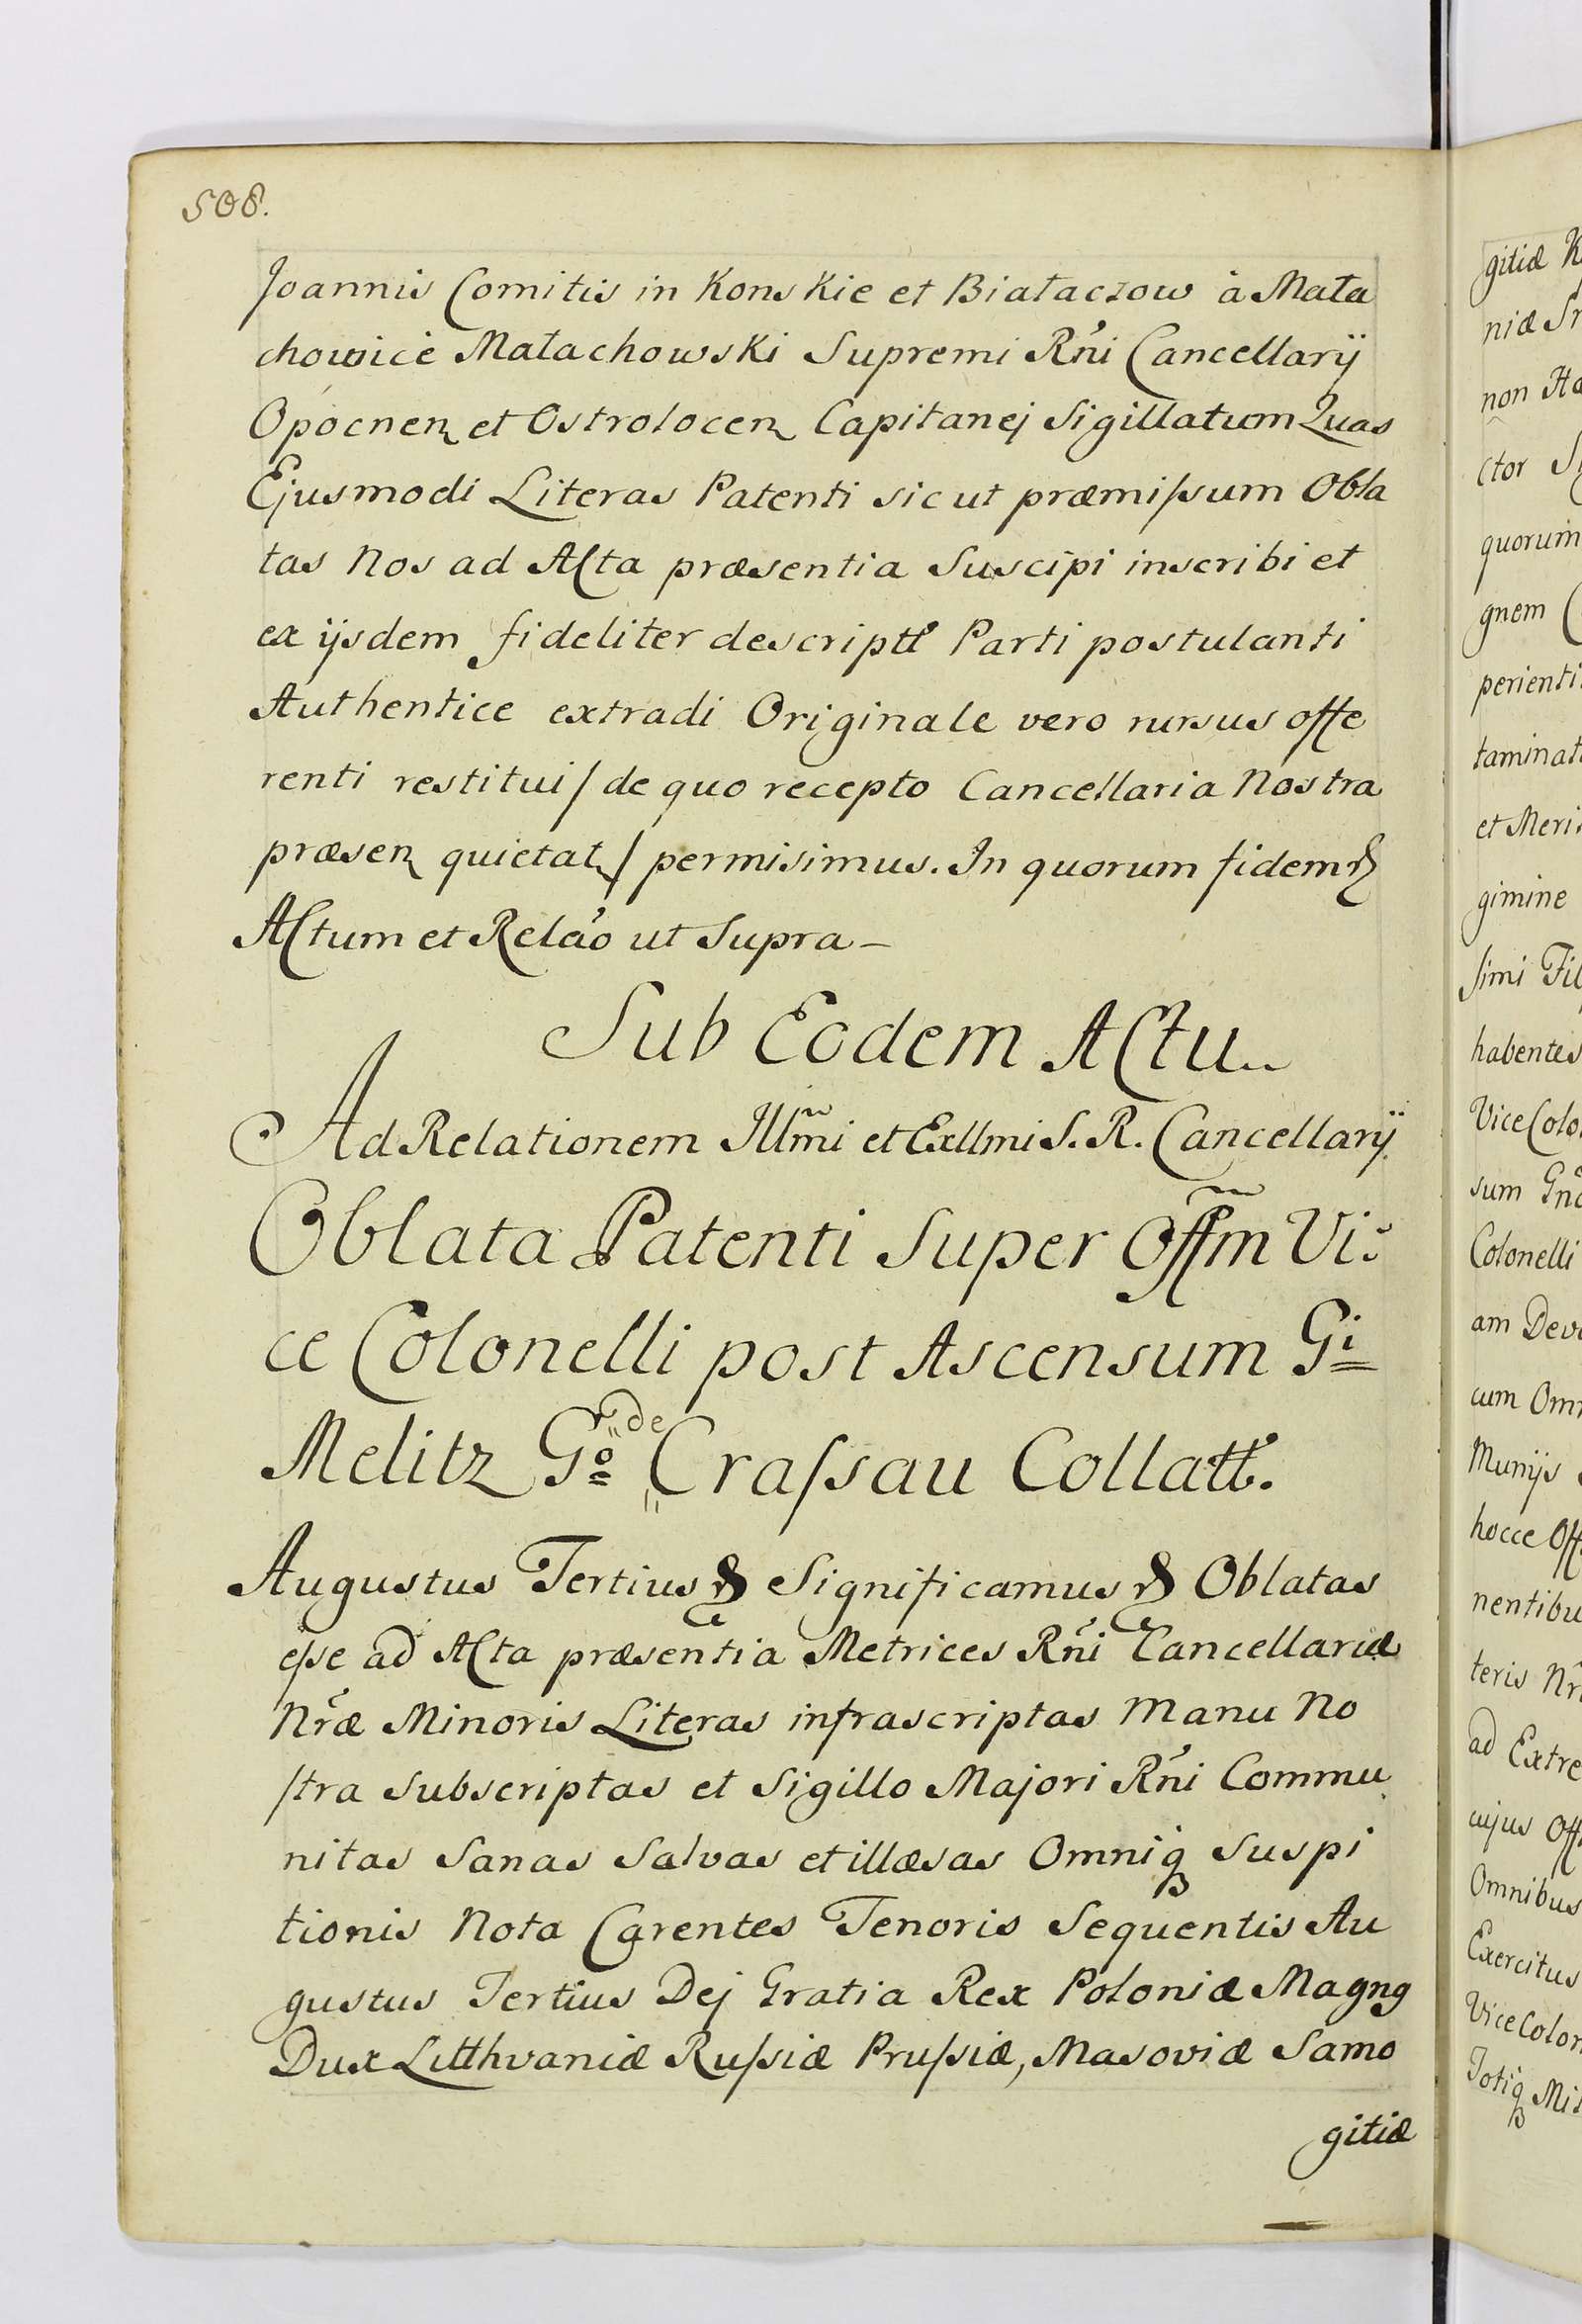 508.
Joannis Comitis in Konskie et Białaczow à Mała
chowice Małachowski Supremi Rñi Cancellarij
Opocnen et Ostrolocen Capitanej Sigillatum Quas
Ejusmodi Literas Patenti sicut præmissum Obla
tas Nos ad Acta præsentia Suscipi inscribi et
ex ijsdem fideliter descriptt Parti postulanti
Authentice extradi Originale vero rursus offe
renti restitui / de quo recepto Cancellaria Nostra
præsen quietat / permisimus. In quorum fidem &
Actum et Relão ut Supra –
Sub Eodem Actu
Ad Relationem Illm̃i et Exllmi S. R. Cancellarij
Oblata Patenti Super Offm̃ Vi
ce Colonelli post Ascensum Gi
Melitz Go de Crassau Collatt.
Augustus Tertius & Significamus & Oblatas
esse ad Acta præsentia Metrices Rñi Cancellariæ
Nr̃æ Minoris Literas infrascriptas Manu No
stra Subscriptas et Sigillo Majori Rñi Commu
nitas Sanas Salvas et illæsas Omniq Suspi
tionis Nota Carentes Tenoris Sequentis Au
gustus Tertius Dej Gratia Rex Poloniæ Magng
Dux Litthvaniæ Russiæ Prussiæ, Masoviæ Samo
gitiæ
gitiæ
niæ
non
ctor
quorum
gnem
perienti
taminat
et Meri
gimine
simi
habentes
Vice Colo
sum
Colonelli
am
cum Om
Munijs
hocce
nentibu
teris
ad Extre
cujus
Omnibus
Exercitus
Vice Colon
Totiq Mi